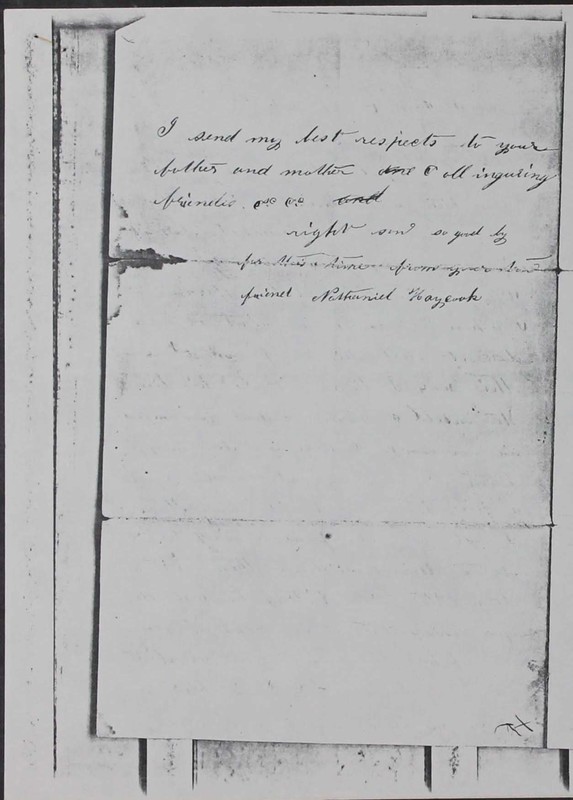 I send my best respects to your
father and mother and & all inquiring
friends &c &c and
right soon so good by
for this time from your true
friend Nathaniel Haycook
H